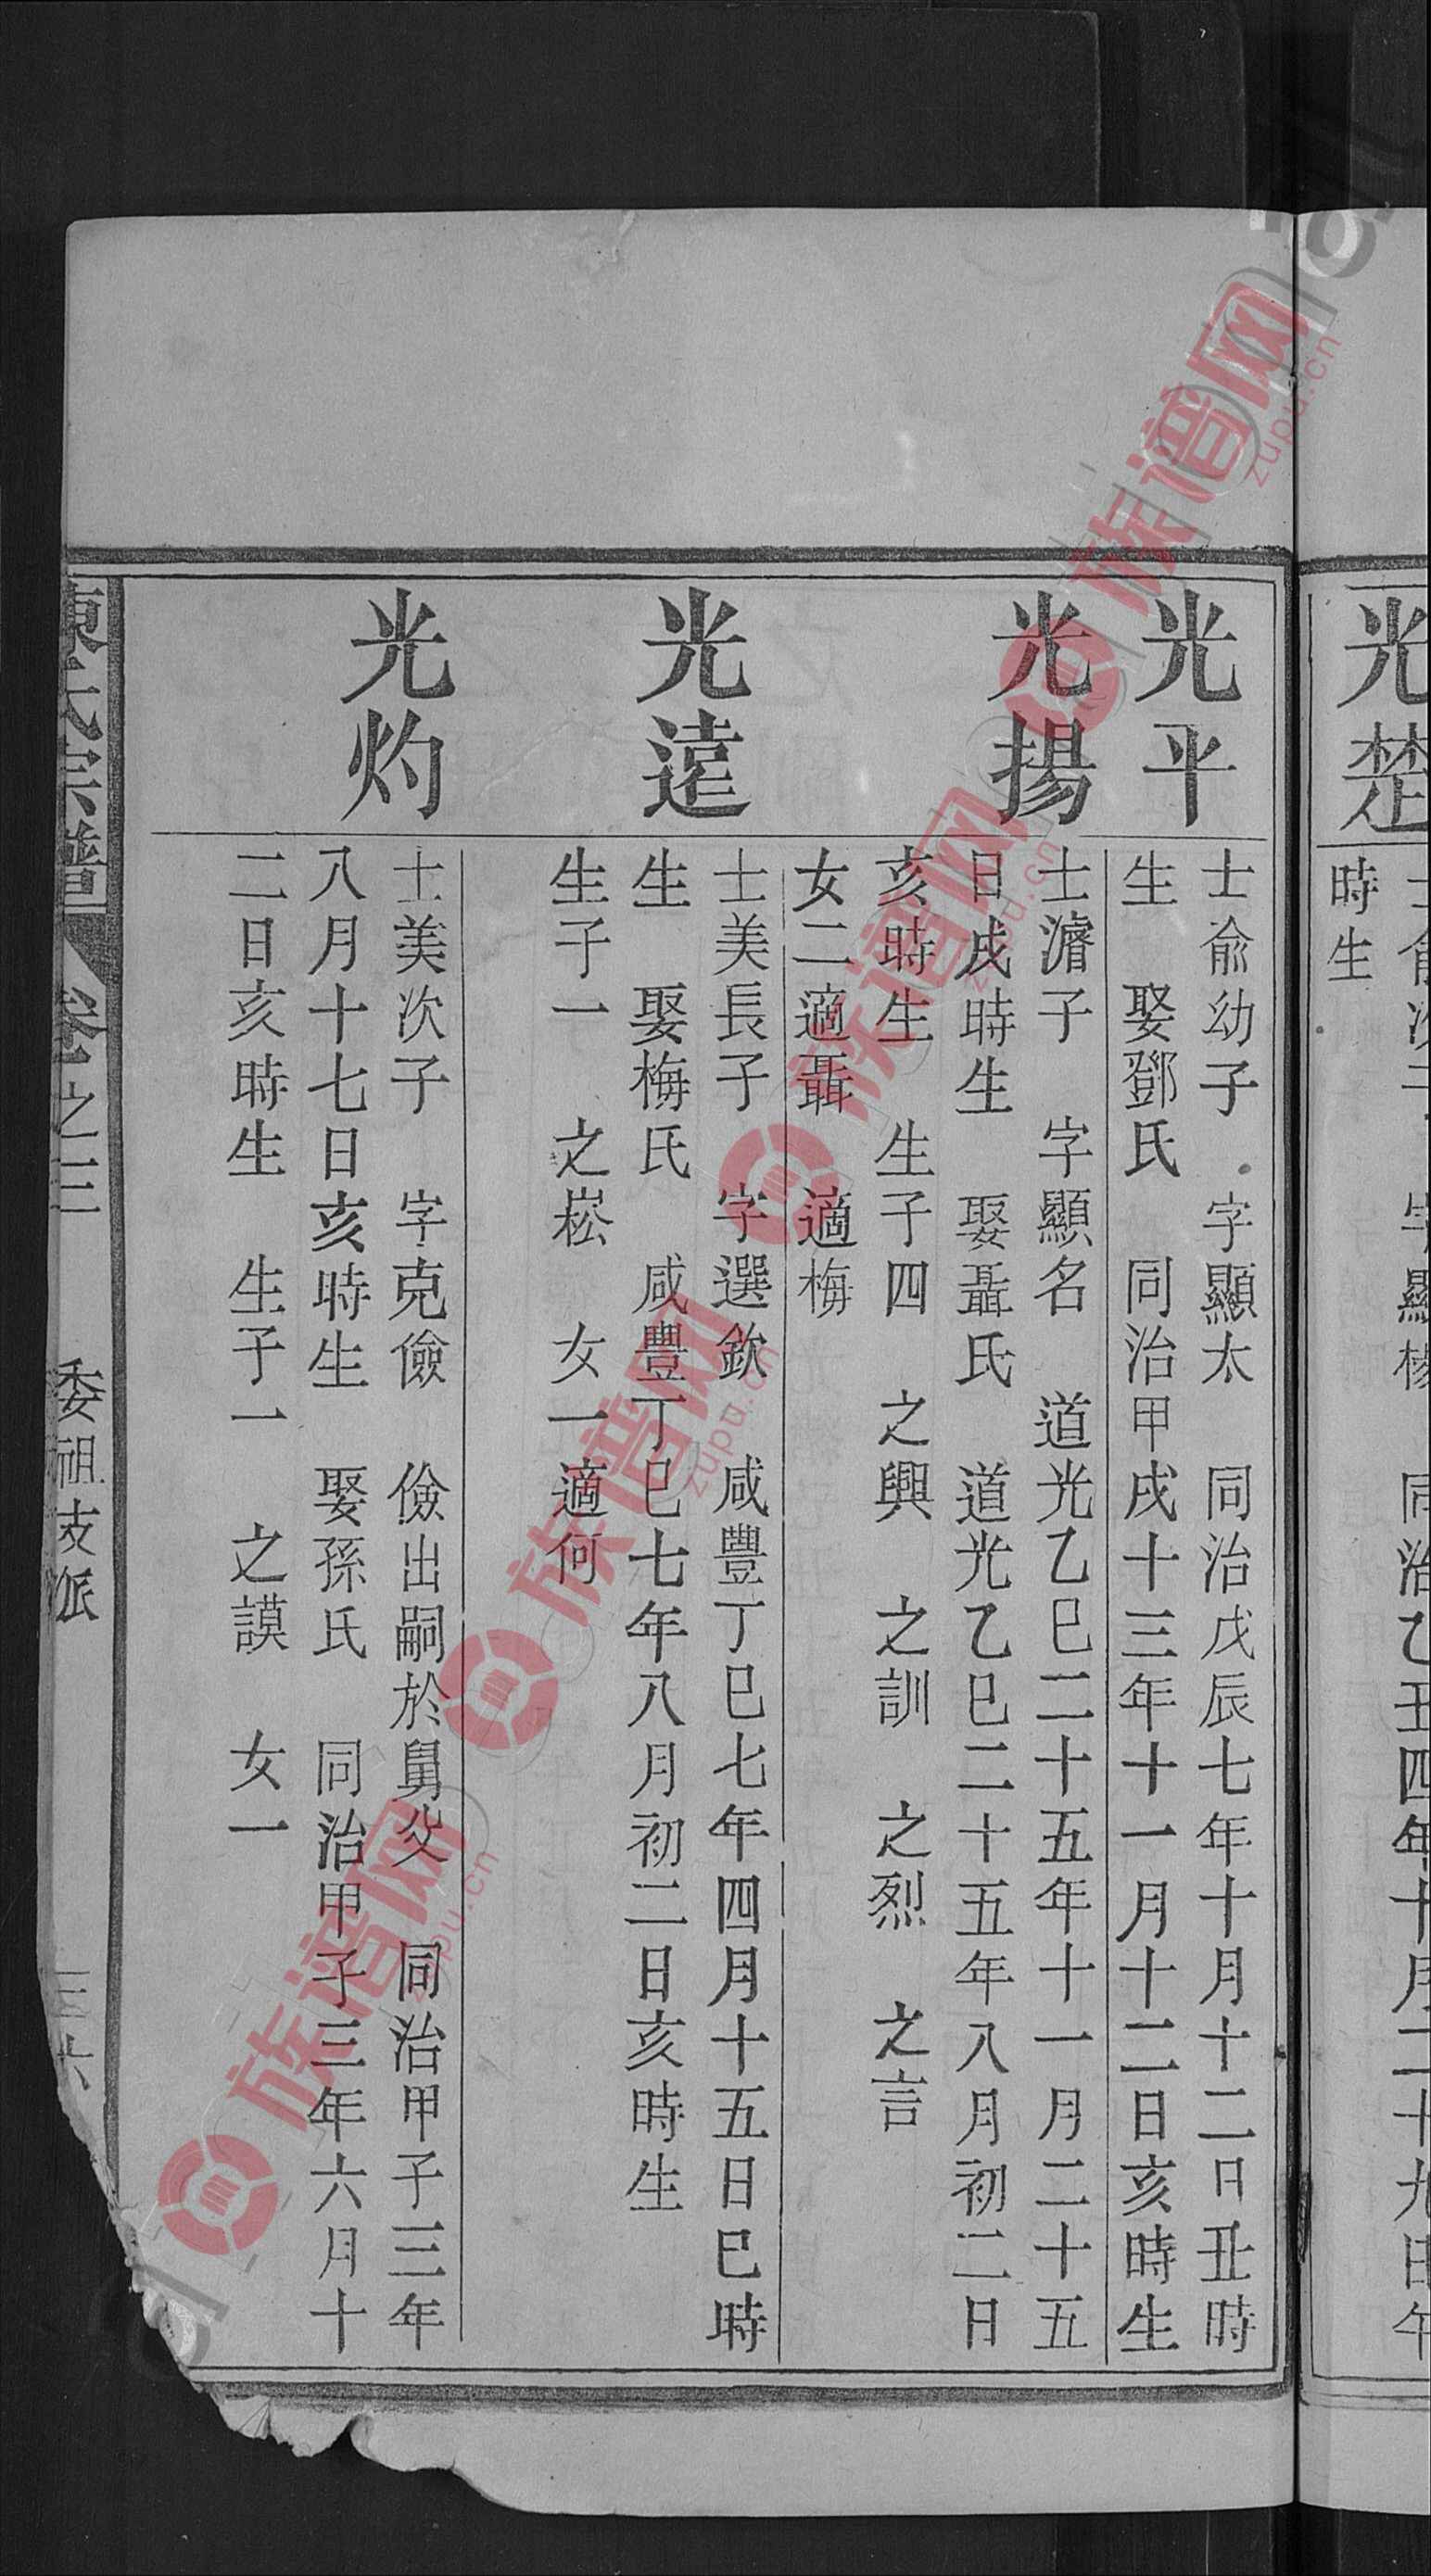 光楚
時生
光平
士俞幼子 字顯太 同治戊辰七年十月十二日丑時
生 娶鄧氏 同治甲戌十三年十一月十二日亥時生
光揚
士濬子 字顯名 道光乙巳二十五年十一月二十五
日戌時生 娶聶氏 道光乙巳二十五年八月初二日
亥時生 生子四 之興 之訓 之烈 之言
女二適聶 適梅
光遠
士美長子 字選欽 咸豐丁巳七年四月十五日巳時
生 娶梅氏 咸豐丁巳七年八月初二日亥時生
生子一 之崧 女一適何
光灼
士美次子 字克儉 儉出嗣於舅父 同治甲子三年
八月十七日亥時生 娶孫氏 同治甲子三年六月十
二日亥時生 生子一 之謨 女一
氏宗譜 卷之三 委祖支派
族谱网
zupu.cn
族谱网
zupu.cn
族谱网
zupu.cn
族谱网